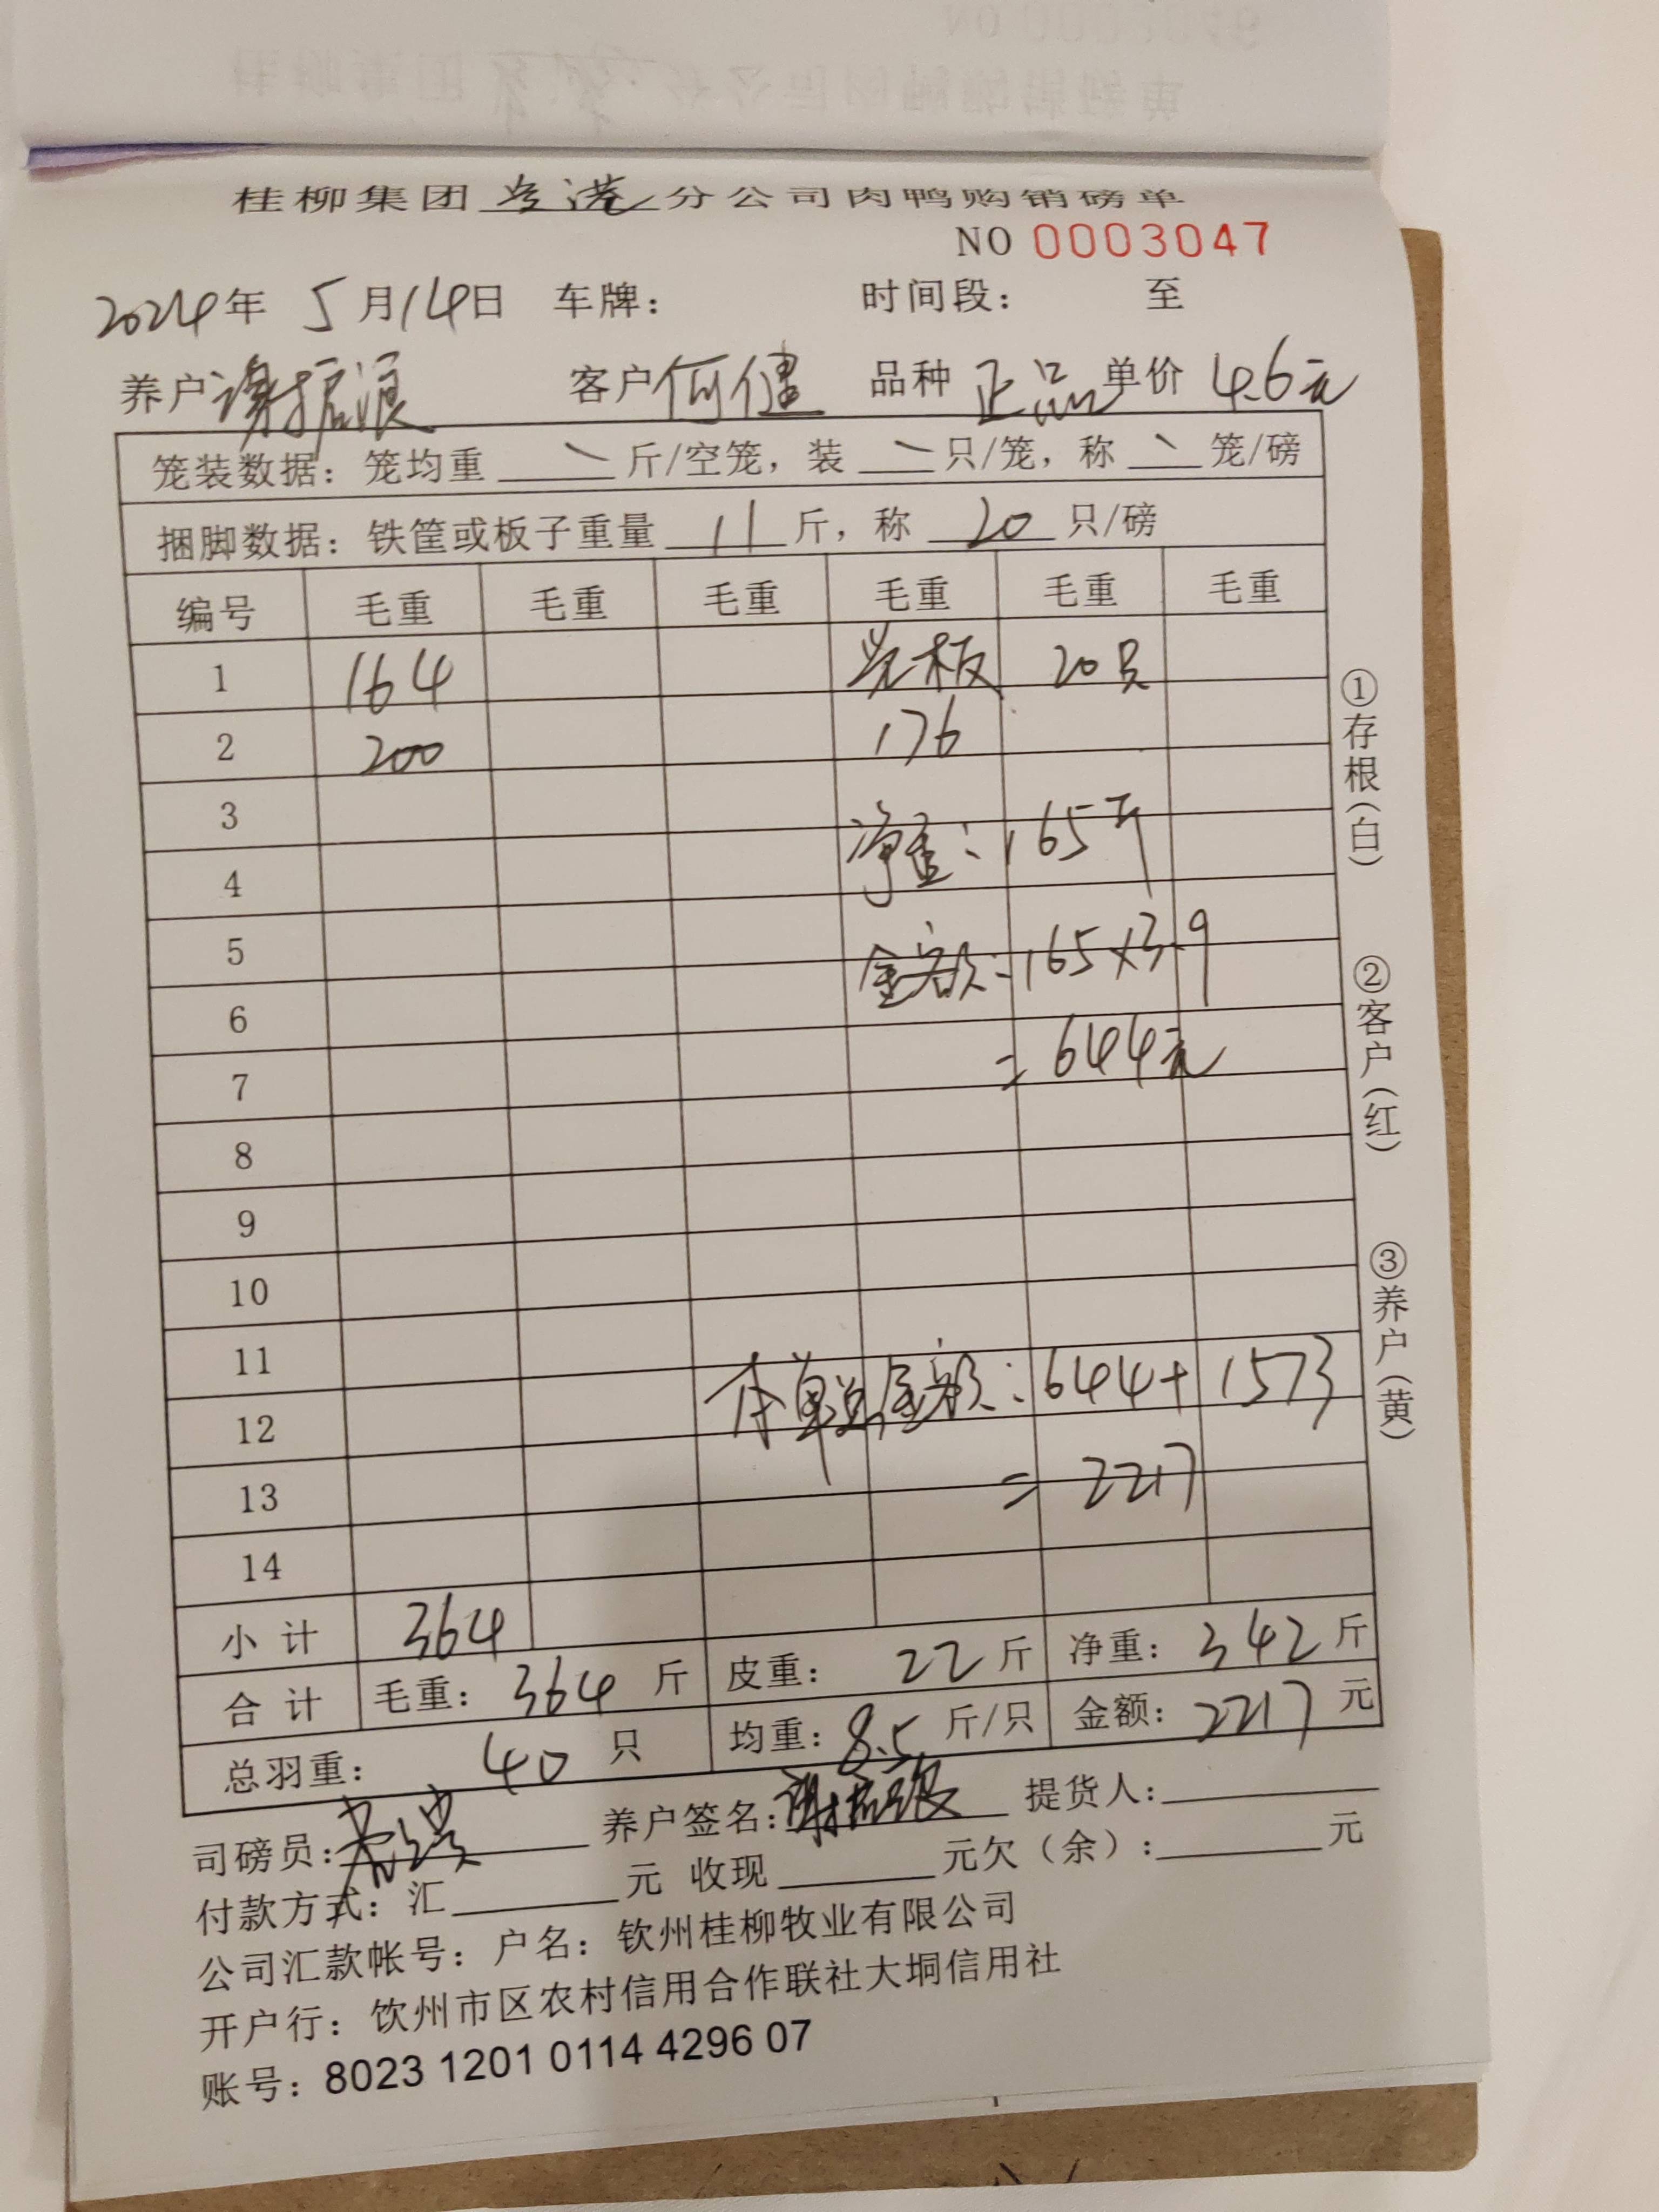 桂柳集团 分公司肉鸭购销磅单
NO 0003047
2024年 5月14日 车牌： 时间段： 至
养户 谢振浪 客户 何健 品种 正品 单价 4.6元
笼装数据：笼均重 斤/空笼，装 只/笼，称 笼/磅
捆脚数据：铁筐或板子重量 11 斤，称 20 只/磅
编号 毛重 毛重 毛重 毛重 毛重 毛重
1 164 板 20只
2 200 176
3 净重：165斤
4
5 金额：165×3.9
6 =644元
7
8
9
10
11 本单总金额：644+1573
12 =2217
13
14
小计 364
合计 毛重：364斤 皮重：22斤 净重：342斤
总羽重：40只 均重：8.5斤/只 金额：2217元
司磅员： 养户签名：谢振浪 提货人：
付款方式：汇 元 收现 元欠（余）： 元
公司汇款帐号：户名：钦州桂柳牧业有限公司
开户行：钦州市区农村信用合作联社大垌信用社
账号：8023 1201 0114 4296 07
①存根（白）
②客户（红）
③养户（黄）